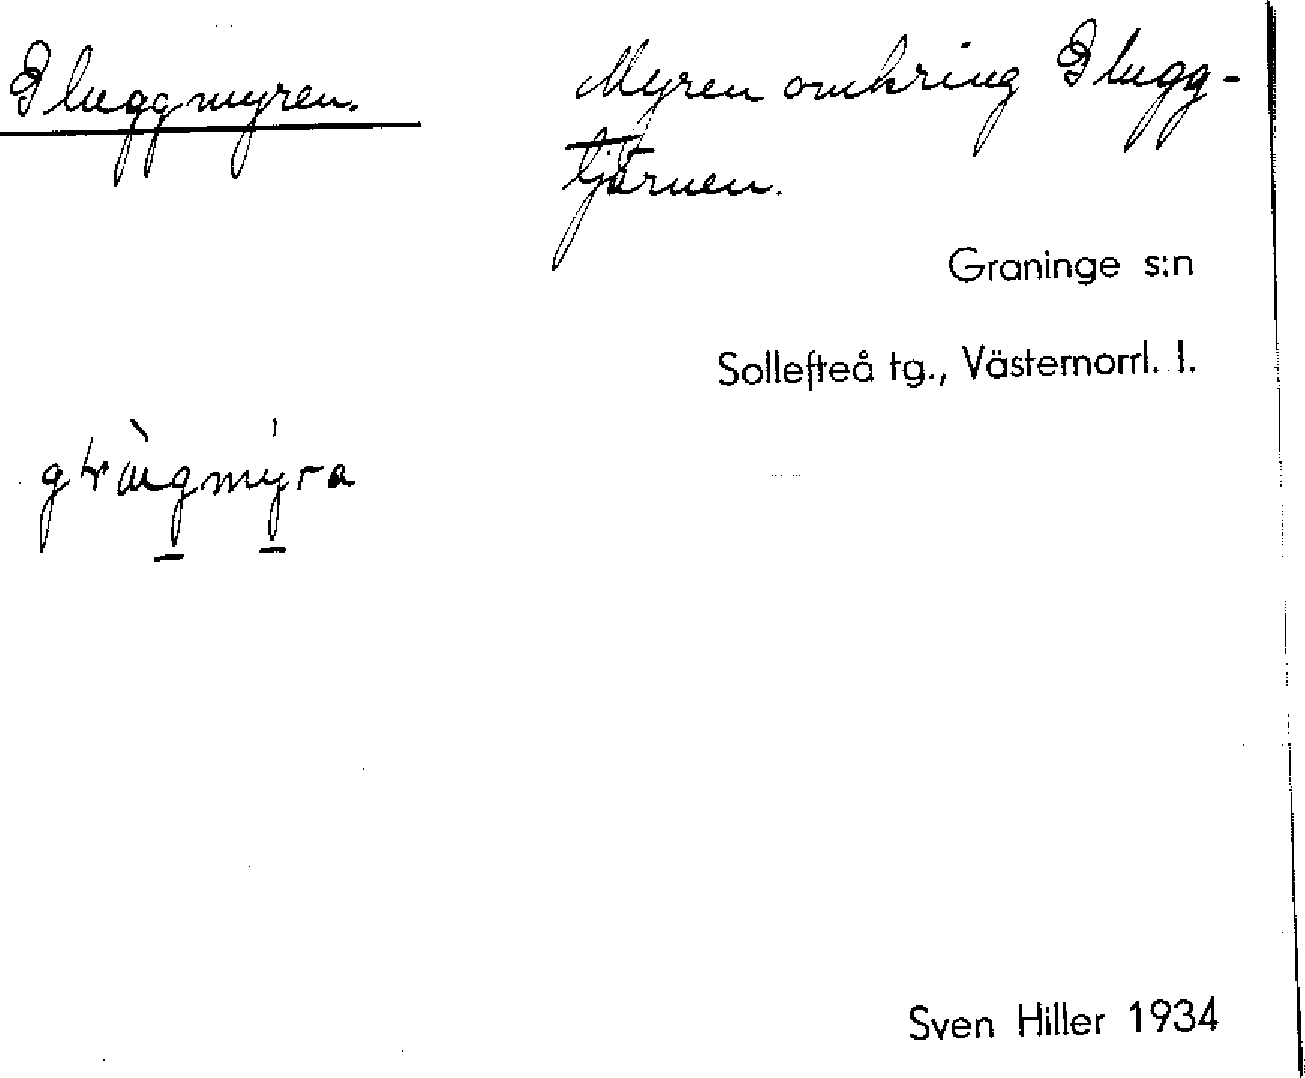 Gluggmyren.
Myren omkring Glugg-
tjärnen.
Graninge s:n
Sollefteå tg., Västernorrl. l.
Sven Hiller 1934